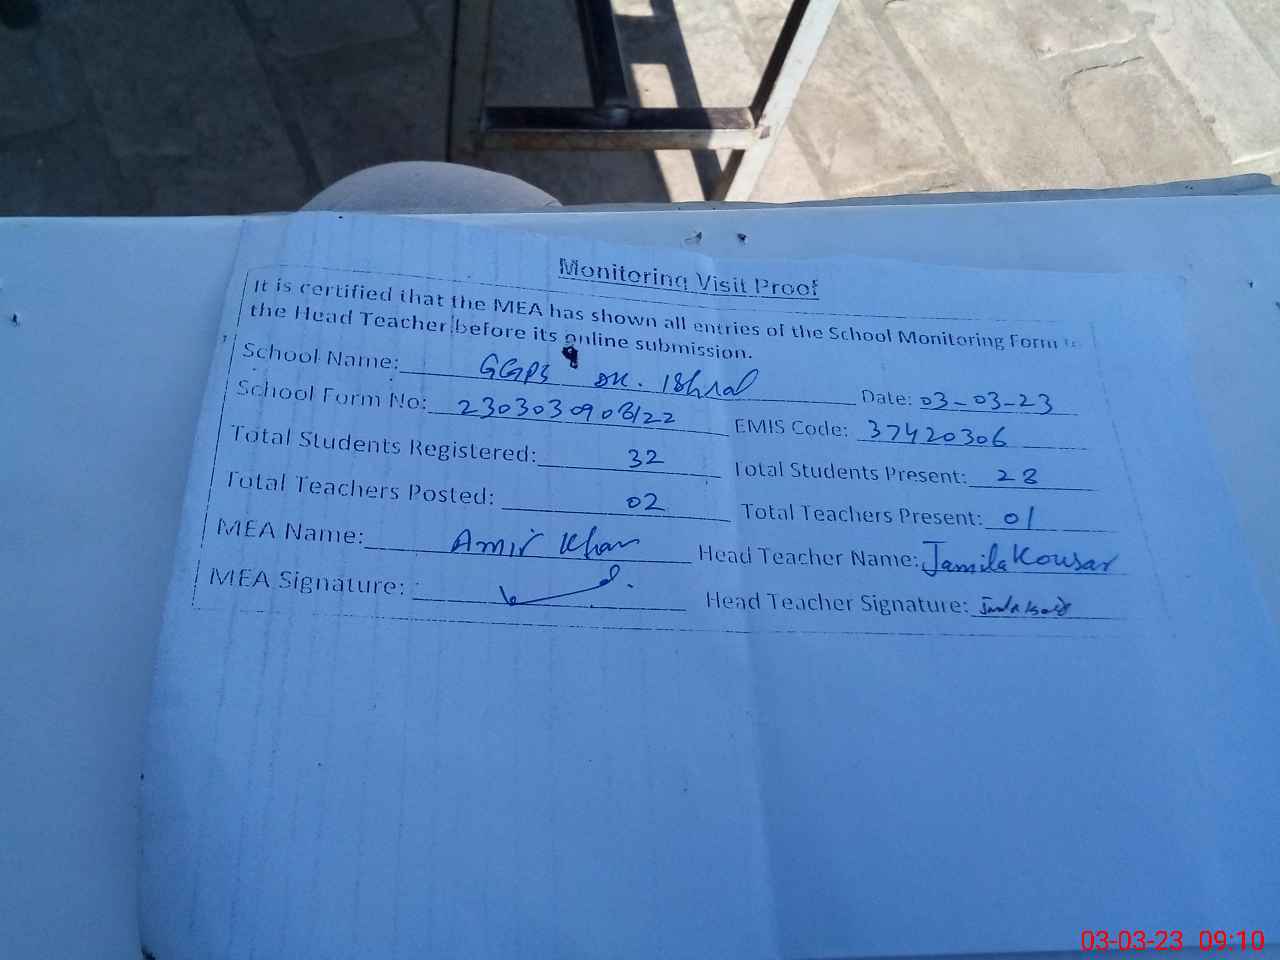 Monitoring Visit Proof
It is certified that the MEA has shown all entries of the School Monitoring Form to
the Head Teacher before its online submission.
School Name: GGPS DK. Ishral Date: 03-03-23
School Form No: 230303090 122 EMIS Code: 37420306
Total Students Registered: 32 Total Students Present: 28
Total Teachers Posted: 02 Total Teachers Present: 01
MEA Name: Amir Khan Head Teacher Name: Jamila Kousar
MEA Signature: Head Teacher Signature:
03-03-23 09:10